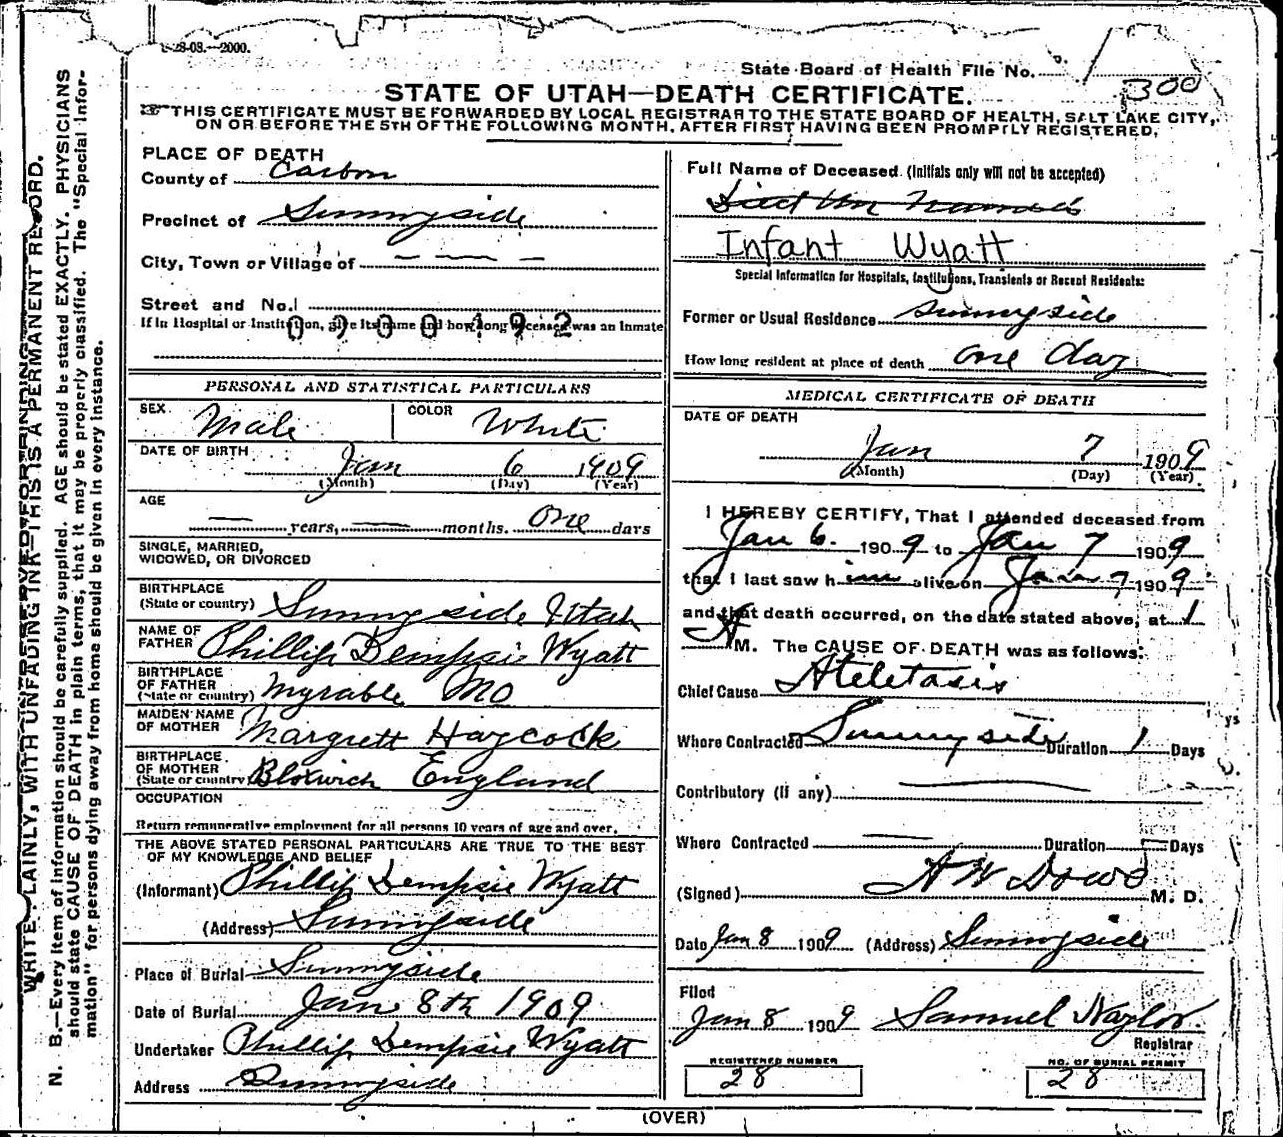 -28-08.—2000.
State Board of Health File No.
300
STATE OF UTAH—DEATH CERTIFICATE.
THIS CERTIFICATE MUST BE FORWARDED BY LOCAL REGISTRAR TO THE STATE BOARD OF HEALTH, SALT LAKE CITY,
ON OR BEFORE THE 5TH OF THE FOLLOWING MONTH, AFTER FIRST HAVING BEEN PROMPTLY REGISTERED.
PLACE OF DEATH
County of Carbon
Precinct of Sunnyside
City, Town or Village of — — — —
Street and No.
If in Hospital or Institution, give its name and how long deceased was an inmate
0900492
PERSONAL AND STATISTICAL PARTICULARS
SEX Male COLOR White
DATE OF BIRTH
Jan 6 1909
(Month) (Day) (Year)
AGE
— years, — months. One days
SINGLE, MARRIED,
WIDOWED, OR DIVORCED
BIRTHPLACE
(State or country) Sunnyside Utah
NAME OF
FATHER Phillip Dempsie Wyatt
BIRTHPLACE
OF FATHER
(State or country) Myrable Mo
MAIDEN NAME
OF MOTHER Margrett Haycock
BIRTHPLACE
OF MOTHER
(State or country) Bloxwich England
OCCUPATION
Return remunerative employment for all persons 10 years of age and over.
THE ABOVE STATED PERSONAL PARTICULARS ARE TRUE TO THE BEST
OF MY KNOWLEDGE AND BELIEF
(Informant) Phillip Dempsie Wyatt
(Address) Sunnyside
Place of Burial Sunnyside
Date of Burial Jan 8th 1909
Undertaker Phillip Dempsie Wyatt
Address Sunnyside
Full Name of Deceased (Initials only will not be accepted)
Infant Wyatt
Special Information for Hospitals, Institutions, Transients or Recent Residents:
Former or Usual Residence Sunnyside
How long resident at place of death one day
MEDICAL CERTIFICATE OF DEATH
DATE OF DEATH
Jan 7 1909
(Month) (Day) (Year)
I HEREBY CERTIFY, That I attended deceased from
Jan 6. 1909 to Jan 7 1909
that I last saw him alive on Jan 7 1909
and that death occurred, on the date stated above, at 1
A M. The CAUSE OF DEATH was as follows:
Chief Cause Ateletasis
Where Contracted Sunnyside Duration 1 Days
Contributory (if any) —
Where Contracted — Duration — Days
(Signed) A W Dowd M. D.
Date Jan 8 1909 (Address) Sunnyside
Filed
Jan 8 1909 Samuel Naylor
Registrar
REGISTERED NUMBER
28
NO. OF BURIAL PERMIT
28
(OVER)
WRITE PLAINLY, WITH UNFADING INK—THIS IS A PERMANENT RECORD.
N. B.—Every item of information should be carefully supplied. AGE should be stated EXACTLY. PHYSICIANS
should state CAUSE OF DEATH in plain terms, that it may be properly classified. The "Special Infor-
mation" for persons dying away from home should be given in every instance.